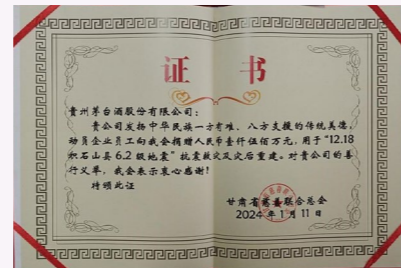 证书
贵州茅台酒股份有限公司：
贵公司发扬中华民族一方有难、八方支援的传统美德，
动员企业员工向我会捐赠人民币壹仟伍佰万元，用于“12.18
积石山县6.2级地震”抗震救灾及灾后重建。对贵公司的善
行义举，我会表示衷心感谢！
特颁此证
甘肃省慈善联合总会
2024年1月11日